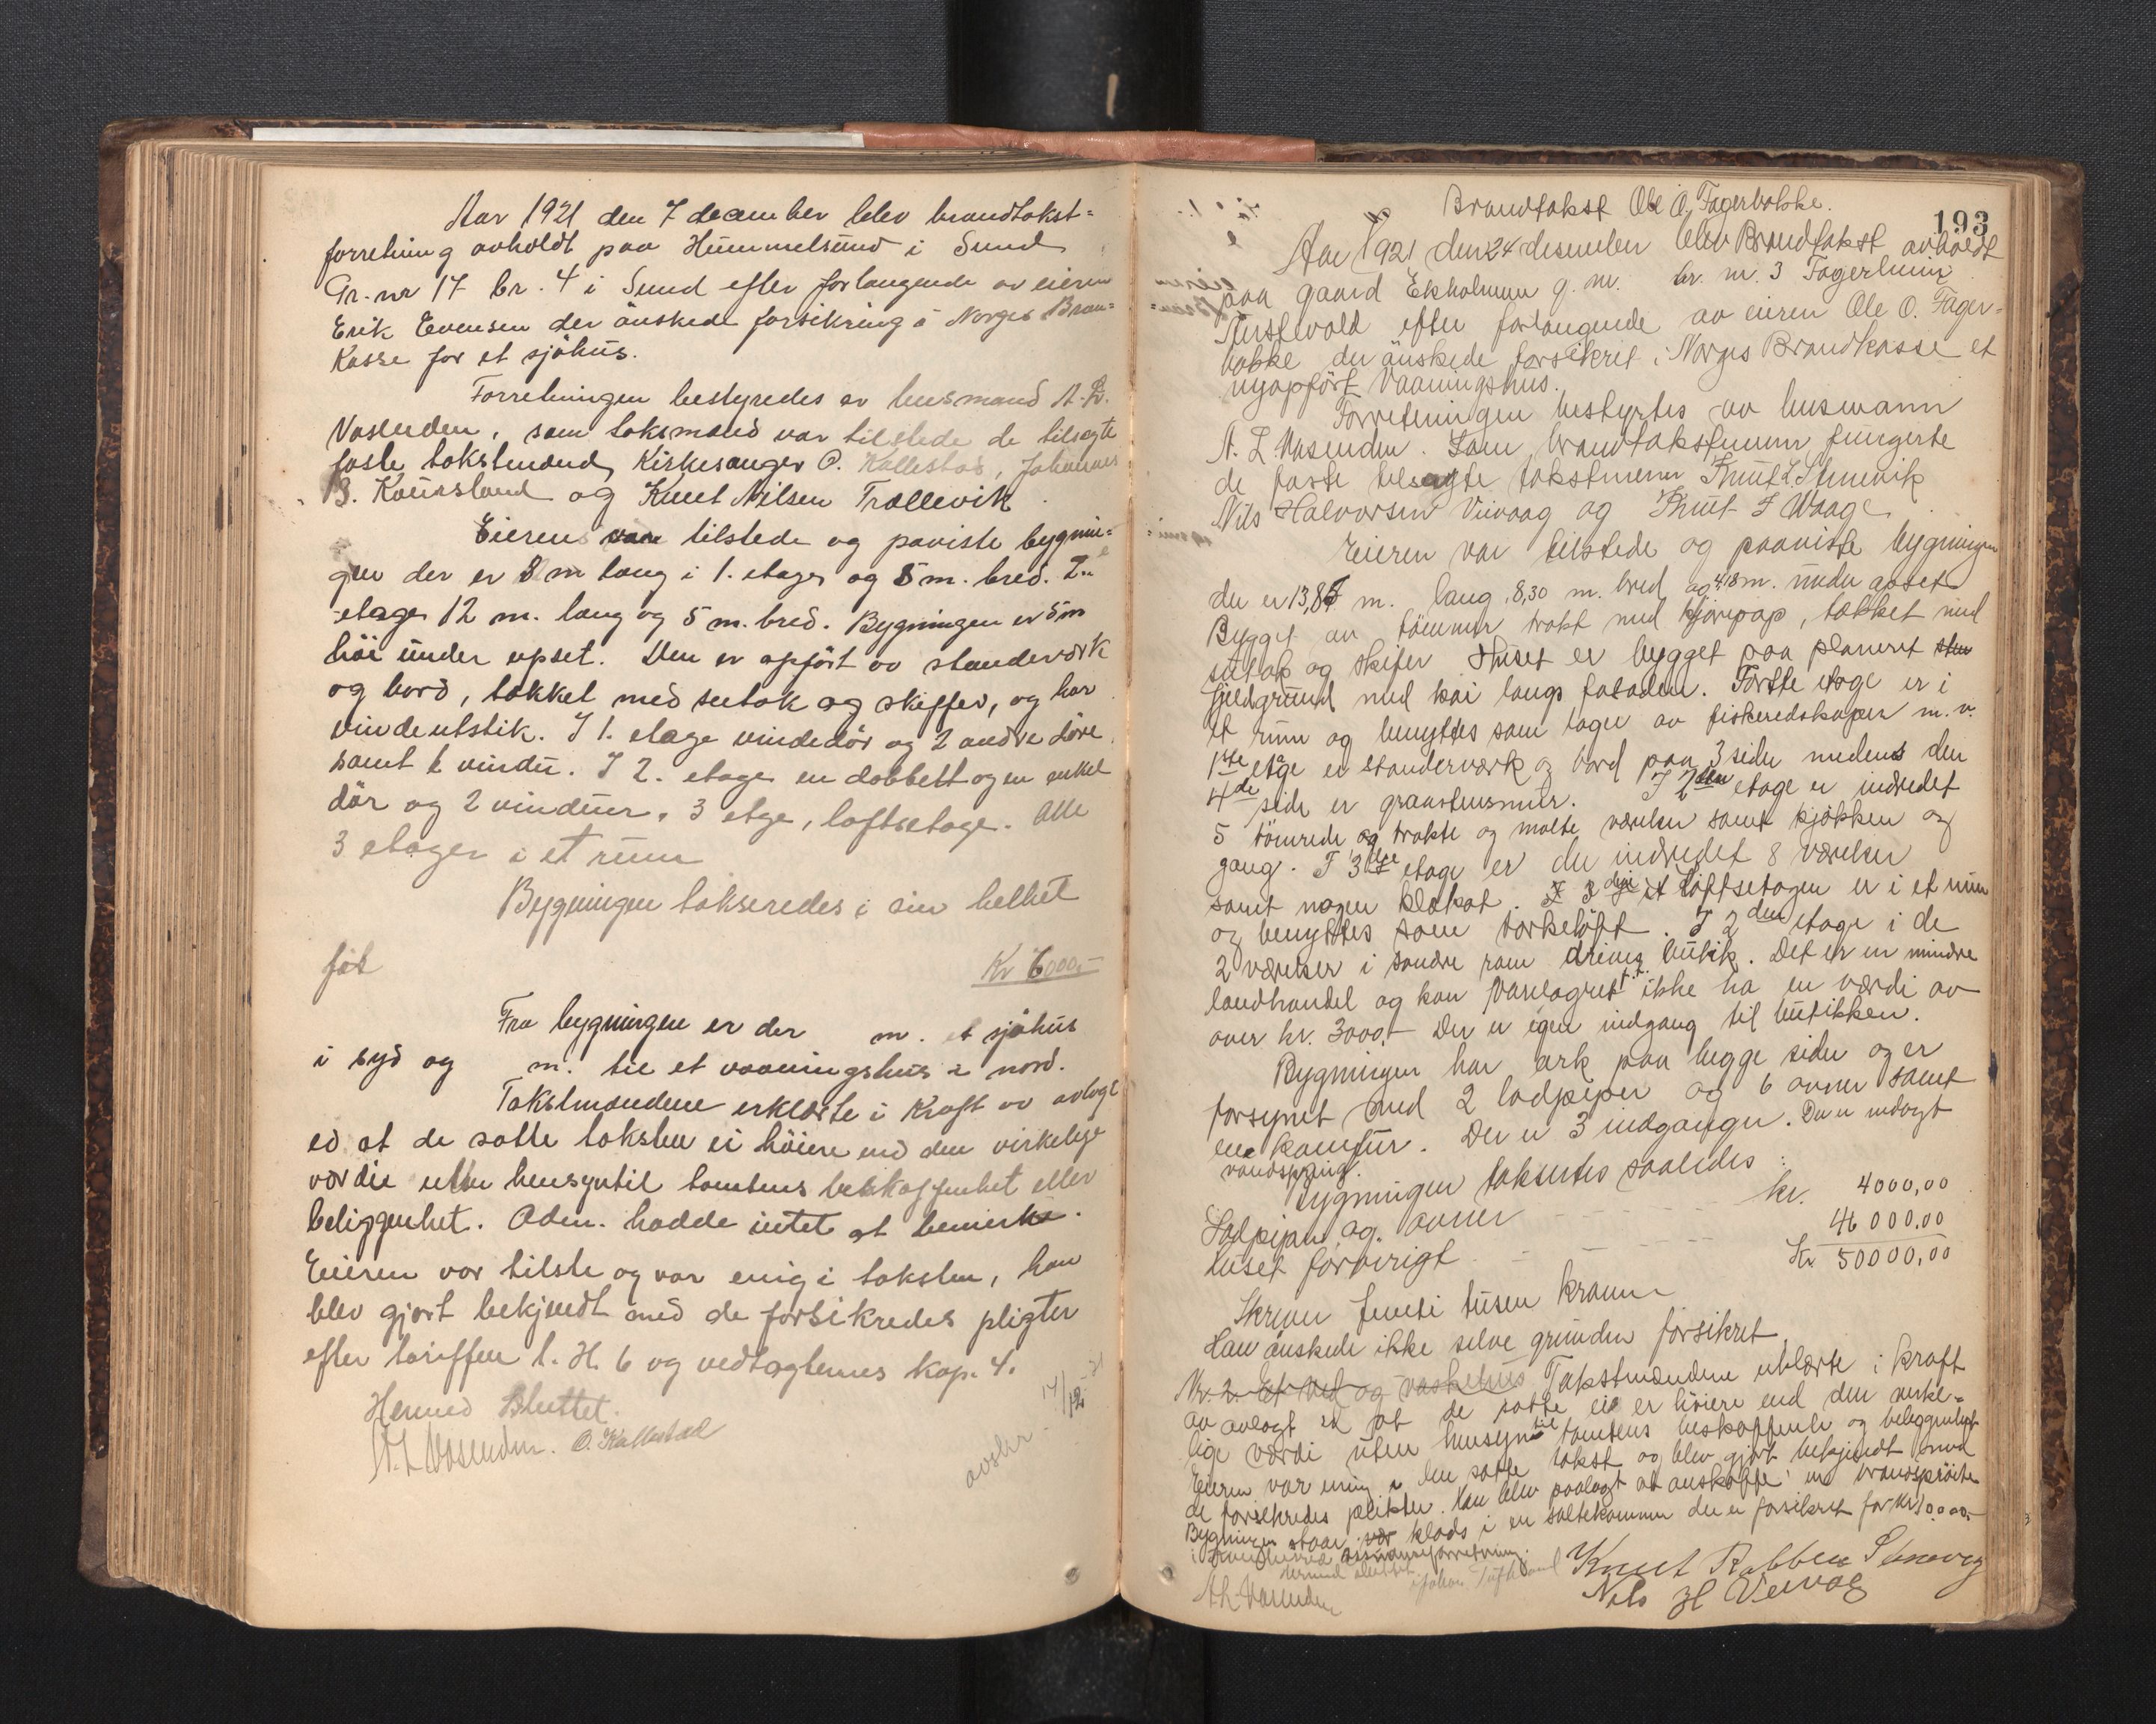 Aar 1921 den 7 december blev brandtakst-
forretning avholdt paa Hummelsund i Sund
Gr. nr 17 br. 4 i Sund efter forlangende av eieren
Erik Evensen der önskede forsikring i Norges Bran-
kasse for et sjöhus.
Forretningen bestyredes av lensmand A. L.
Vasenden, som taksmænd var tilstede de tilsagte
faste takstmænd, Kirkesanger O. Kallestad, Johannes
B. Kausland og Knut Nilsen Trællevik
Eieren var tilstede og paaviste bygnin-
gen der er 8 m lang i 1. etage og 5 m. bred. 2.
etage 12 m. lang og 5 m. bred. Bygningen er 5 m
höi under opset. Den er opfört av standerverk
og bord, tækket med sutak og skiffer, og har
vindeutstik. I 1. etage vindedör og 2 andre döre
samt 1 vindu. I 2. etage en dobbelt og en enkel
dör og 2 vinduer. 3 etge, loftsetage. Alle
3 etager i et rum
Bygningen takseredes i sin helhet
for Kr 6000,-
Fra bygningen er der m. et sjöhus
i syd og m. til et vaaningshus i nord.
Takstmændene erklærte i kraft av avlagt
ed at de satte taksten ei höiere end den virkelige
værdie uten hensyn til tomtens beskaffenhet eller
beliggenhet. Odm. hadde intet at bemerke.
Eieren var tilste og var enig i taksten, han
blev gjort bekjendt med de forsikredes pligter
efter tariffen l. H. 6 og vedtægternes kap. 4.
Hermed Sluttet.
A. L. Vasenden. O. Kallestad
avskr. 17/12-21
193
Brandtakst Ole O. Fagerbakke.
Aar 1921 den 24 desember blev Brandtakst avholdt
paa gaard Ekholmen g. nr. br. nr. 3 Fagerheim
Austevold efter forlangende av eieren Ole O. Fager-
bakke der önskede forsikret i Norges Brandkasse et
nyopfört Vaaningshus.
Forretningen bestyrtes av lensmann
A. L. Vasenden. Som brandtakstmenn fungerte
de faste tilsagte takstmenn Knut L. Stenevik
Nils Halvorsen Vivaag og Knut J Waage.
Eieren var tilstede og paaviste bygningen
der er 13,87 m. lang, 8,30 m. bred og 4,18 m. under opset
Bygget av tömmer trokt med tjörepap, tækket med
sutak og skifer Huset er bygget paa planert
fjeldgrund med kai langs fasaden. Förste etage er i
et rum og benyttes som lager av fiskeredskaper m. v.
1ste etage er standerværk og bord paa 3 sider medens den
4de side er graastensmur. I 2den etage er indredet
5 tömrede og trokte og malte værelser samt kjökken og
gang. I 3dje etage er der indredet 8 værelser
samt nogen klokot. Loftsetagen er i et rum
og benyttes som törkeloft. I 2den etage i de
2 værelser i söndre ram drives butik. Det er en mindre
landhandel og kan varelagret ikke ha en værdi av
over kr. 3000,- Der er egen indgang til butikken.
Bygningen har ark paa begge sider og er
forsynet med 2 ladpiper og 6 ovner samt
en komfur. Der er 3 indganger. Der er indlagt
vandspring.
Bygningen taksertes saaledes:
Ladpiper og ovner - - - kr. 4000,00
Huset foröverigt - - - - 46000,00
Kr. 50000,00
Skriver femti tusen kroner
Han önskede ikke selve grunden forsikret.
Nr. 2. Et Ved og vaskehus Takstmændene erklærte i kraft
av avlagt ed at de satte ei er höiere end den virke-
lige værdi uten hensyn til tomtens beskaffenhet og beliggenhet
Eieren var enig i den satte takst og blev gjort bekjendt med
de forsikredes plikter. Han blev paalagt at anskaffe en brandspröite
Bygningen staar klods i en saltekommer der er forsikret for kr 10.000,-
Knut Rabben Stenevig
Nils H Veivaag
A. L. Vasenden